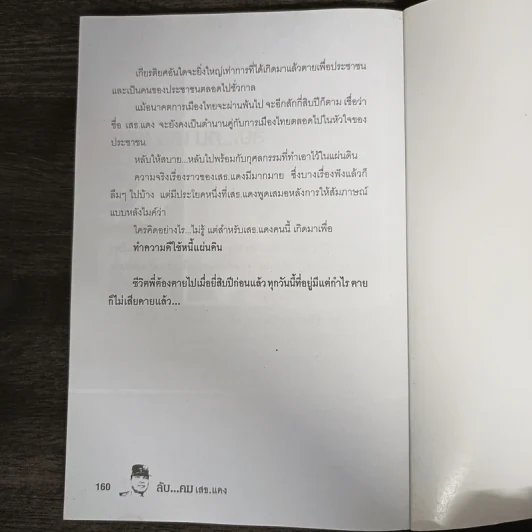 เกียรติยศอันใดจะยิ่งใหญ่เท่าการที่ได้เกิดมาแล้วตายเพื่อประชาชน
และเป็นคนของประชาชนตลอดไปชั่วกาล
แม้อนาคตการเมืองไทยจะผ่านพ้นไป จะอีกสักกี่สิบปีก็ตาม เชื่อว่า
ชื่อ เสธ.แดง จะยังคงเป็นตำนานคู่กับการเมืองไทยตลอดไปในหัวใจของ
ประชาชน
หลับให้สบาย...หลับไปพร้อมกับกุศลกรรมที่ทำเอาไว้ในแผ่นดิน
ความจริงเรื่องราวของเสธ.แดงมีมากมาย ซึ่งบางเรื่องฟังแล้วก็
ลืมๆ ไปบ้าง แต่มีประโยคหนึ่งที่เสธ.แดงพูดเสมอหลังการให้สัมภาษณ์
แบบหลังไมค์ว่า
ใครคิดอย่างไร...ไม่รู้ แต่สำหรับเสธ.แดงคนนี้ เกิดมาเพื่อ
ทำความดีใช้หนี้แผ่นดิน
ชีวิตพี่ต้องตายไปเมื่อยี่สิบปีก่อนแล้ว ทุกวันนี้ที่อยู่มีแต่กำไร ตาย
ก็ไม่เสียดายแล้ว...
160 ลับ...คม เสธ.แดง